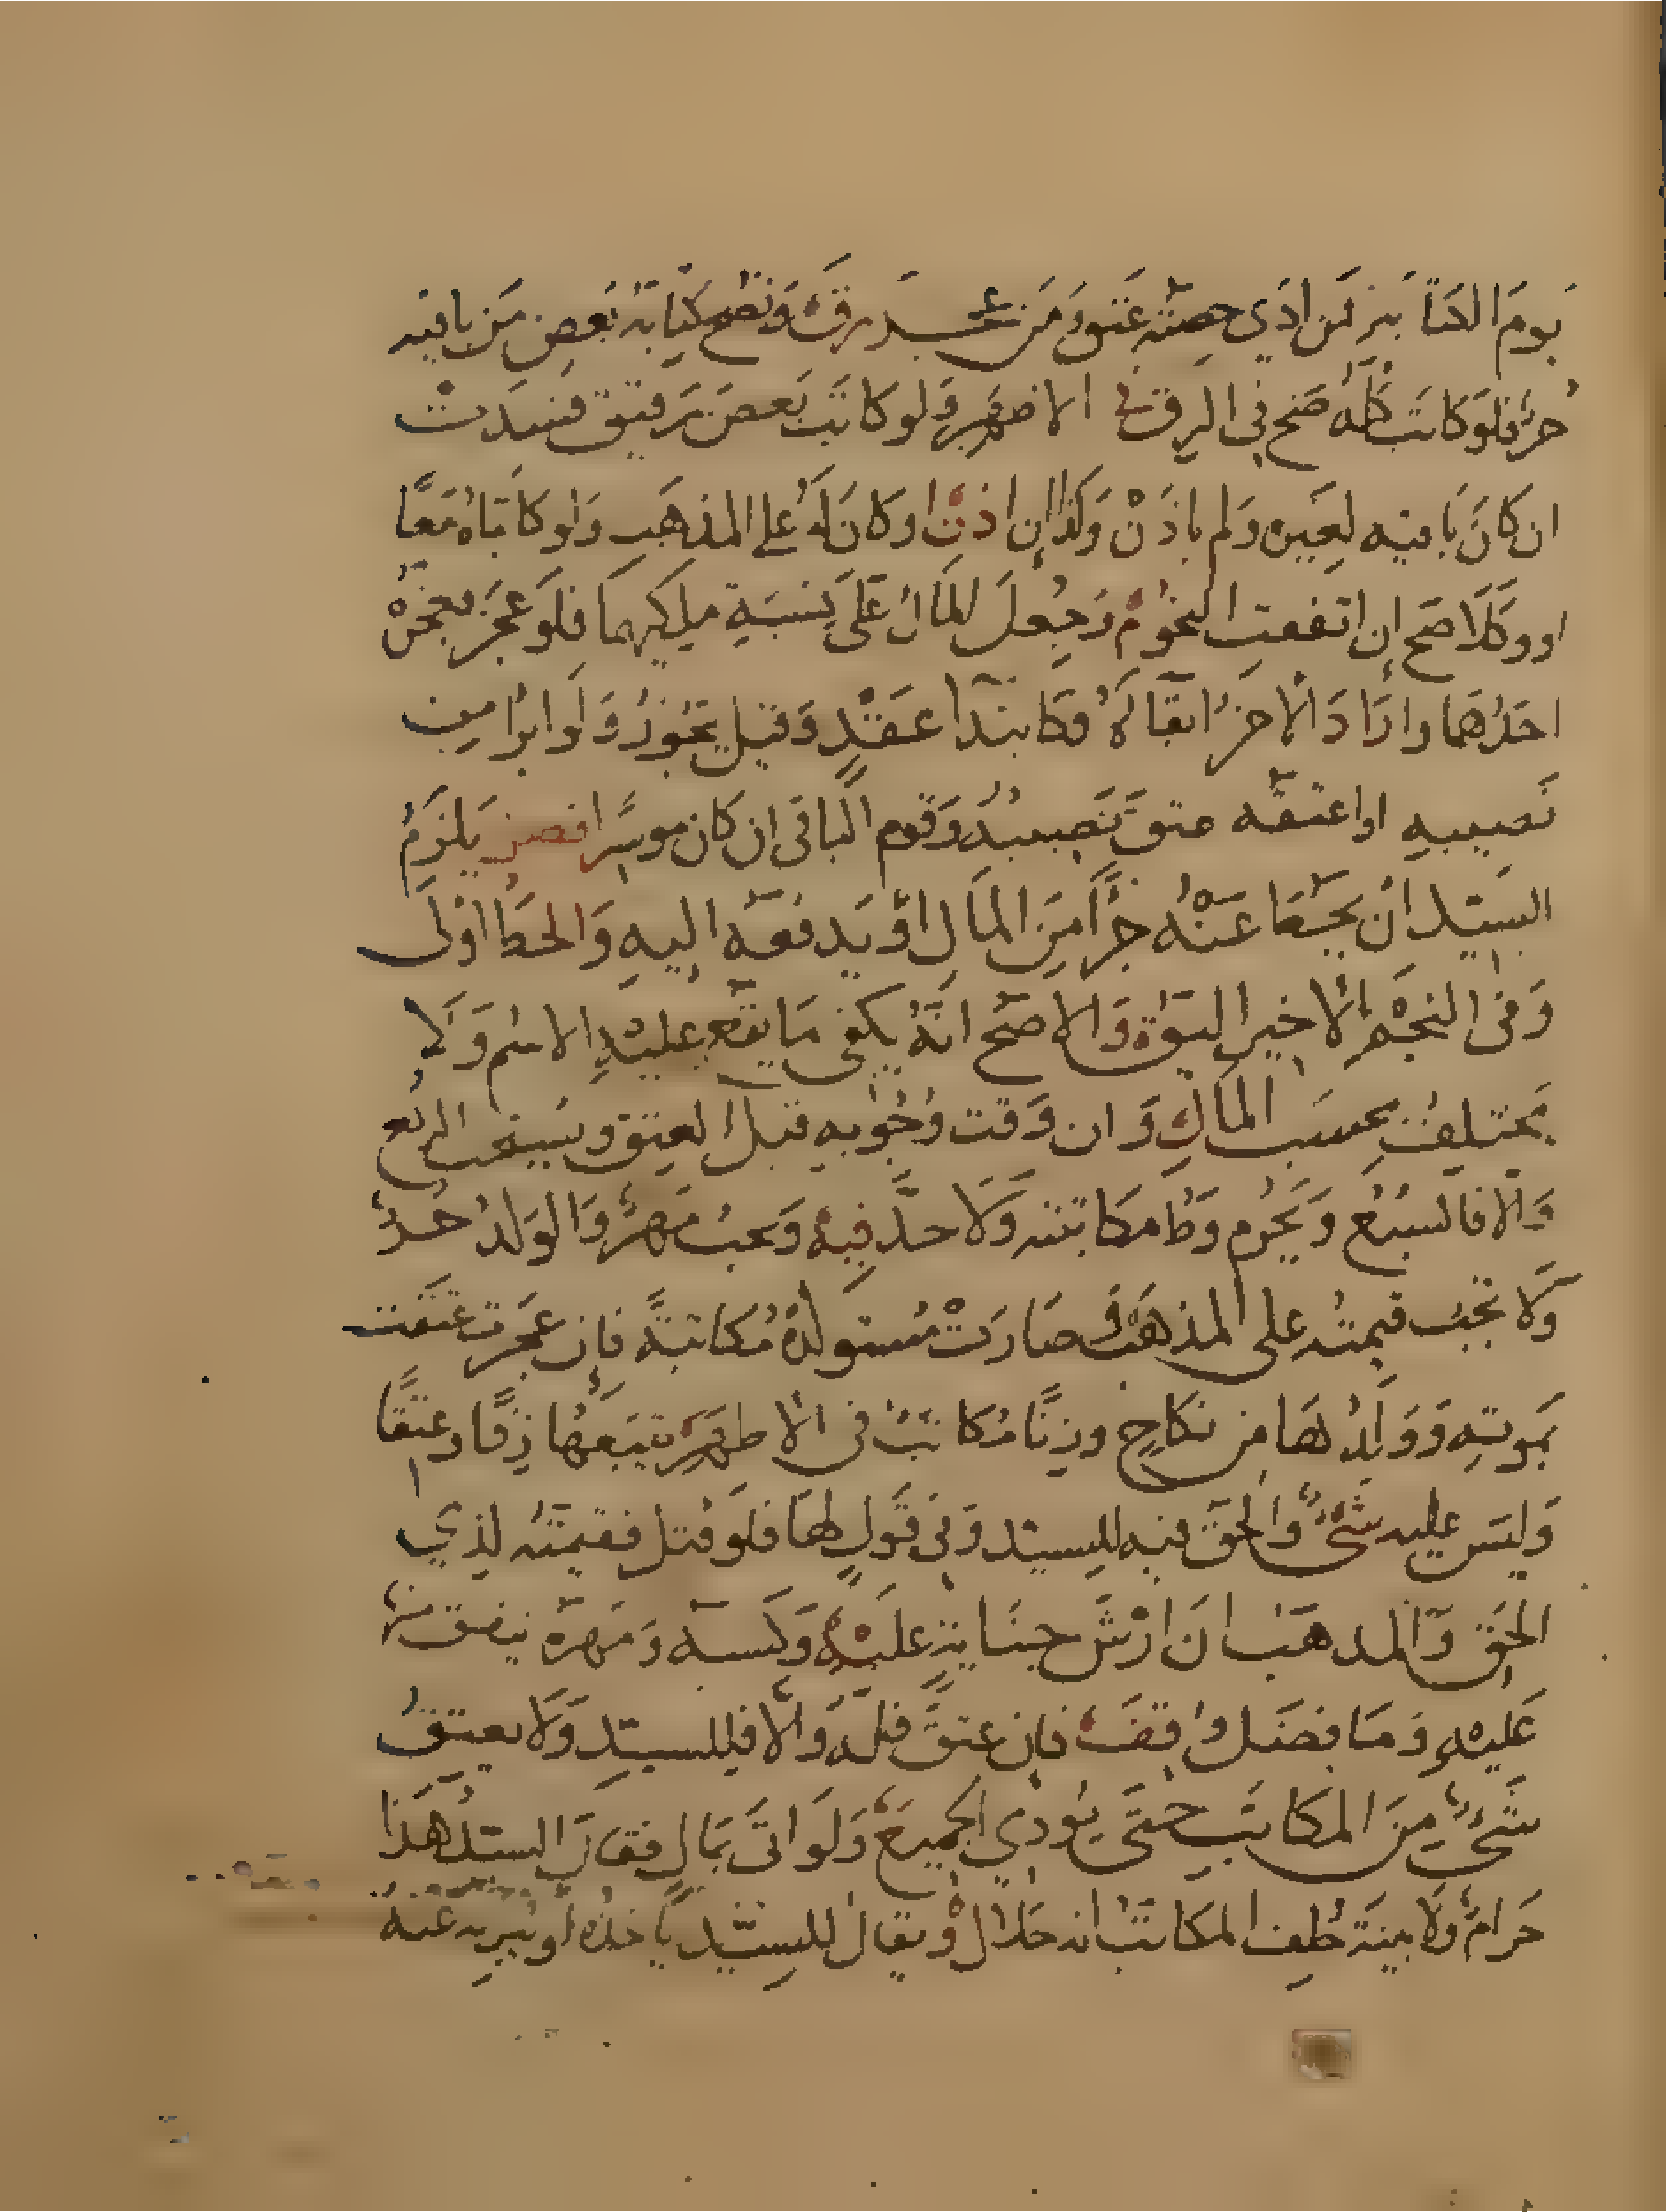 يوم الكتابة فمن ادي حصته عتق ومن عجز رق وتصح كتابة بعض من باقيه
حر فلو كاتب كله صح في الرق في الاظهر ولو كاتب بعض رقيق فسدت
ان كان باقيه لغيره ولم ياذن وكذا ان اذن او كان له على المذهب ولو كاتباه معا
او وكلا صح ان اتفقت النجوم وجعل المال على نسبة ملكيهما فلو عجز فعجزه
احدهما واراد الاخر ابقاه فكابتدا عقد وقيل يجوز ولو ابرا من
نصيبه او اعتقه عتق نصيبه وقوم الباقي ان كان موسرا فصل يلزم
السيد ان يحط عنه جزا من المال او يدفعه اليه والحط اولى
وفي النجم الاخير اليق والاصح انه يكفي ما يقع عليه الاسم ولا
يختلف بحسب المال وان وقت وجوبه قبل العتق ويستحب الربع
والا فالسبع ويحرم وطا مكاتبته ولا حد فيه ويجب مهر والولد حر
ولا تجب قيمته على المذهب وصارت مستولدة مكاتبة فان عجزت عتقت
بموته وولدها من نكاح وزنا مكاتب في الاظهر يتبعها رقا وعتقا
وليس عليه شيء والحق فيه للسيد وفي قول لها فلو قتل فقيمته لذي
الحق والمذهب ان ارش جنايته عليه وكسبه ومهره ينفق منها
عليه وما فضل وقف فان عتق فله والا فللسيد ولا يعتق
شيء من المكاتب حتى يودي الجميع ولو اتى بمال فقال السيد هذا
حرام ولا بينة حلف المكاتب انه حلال ويقال للسيد ياخذه او يبريه عنه